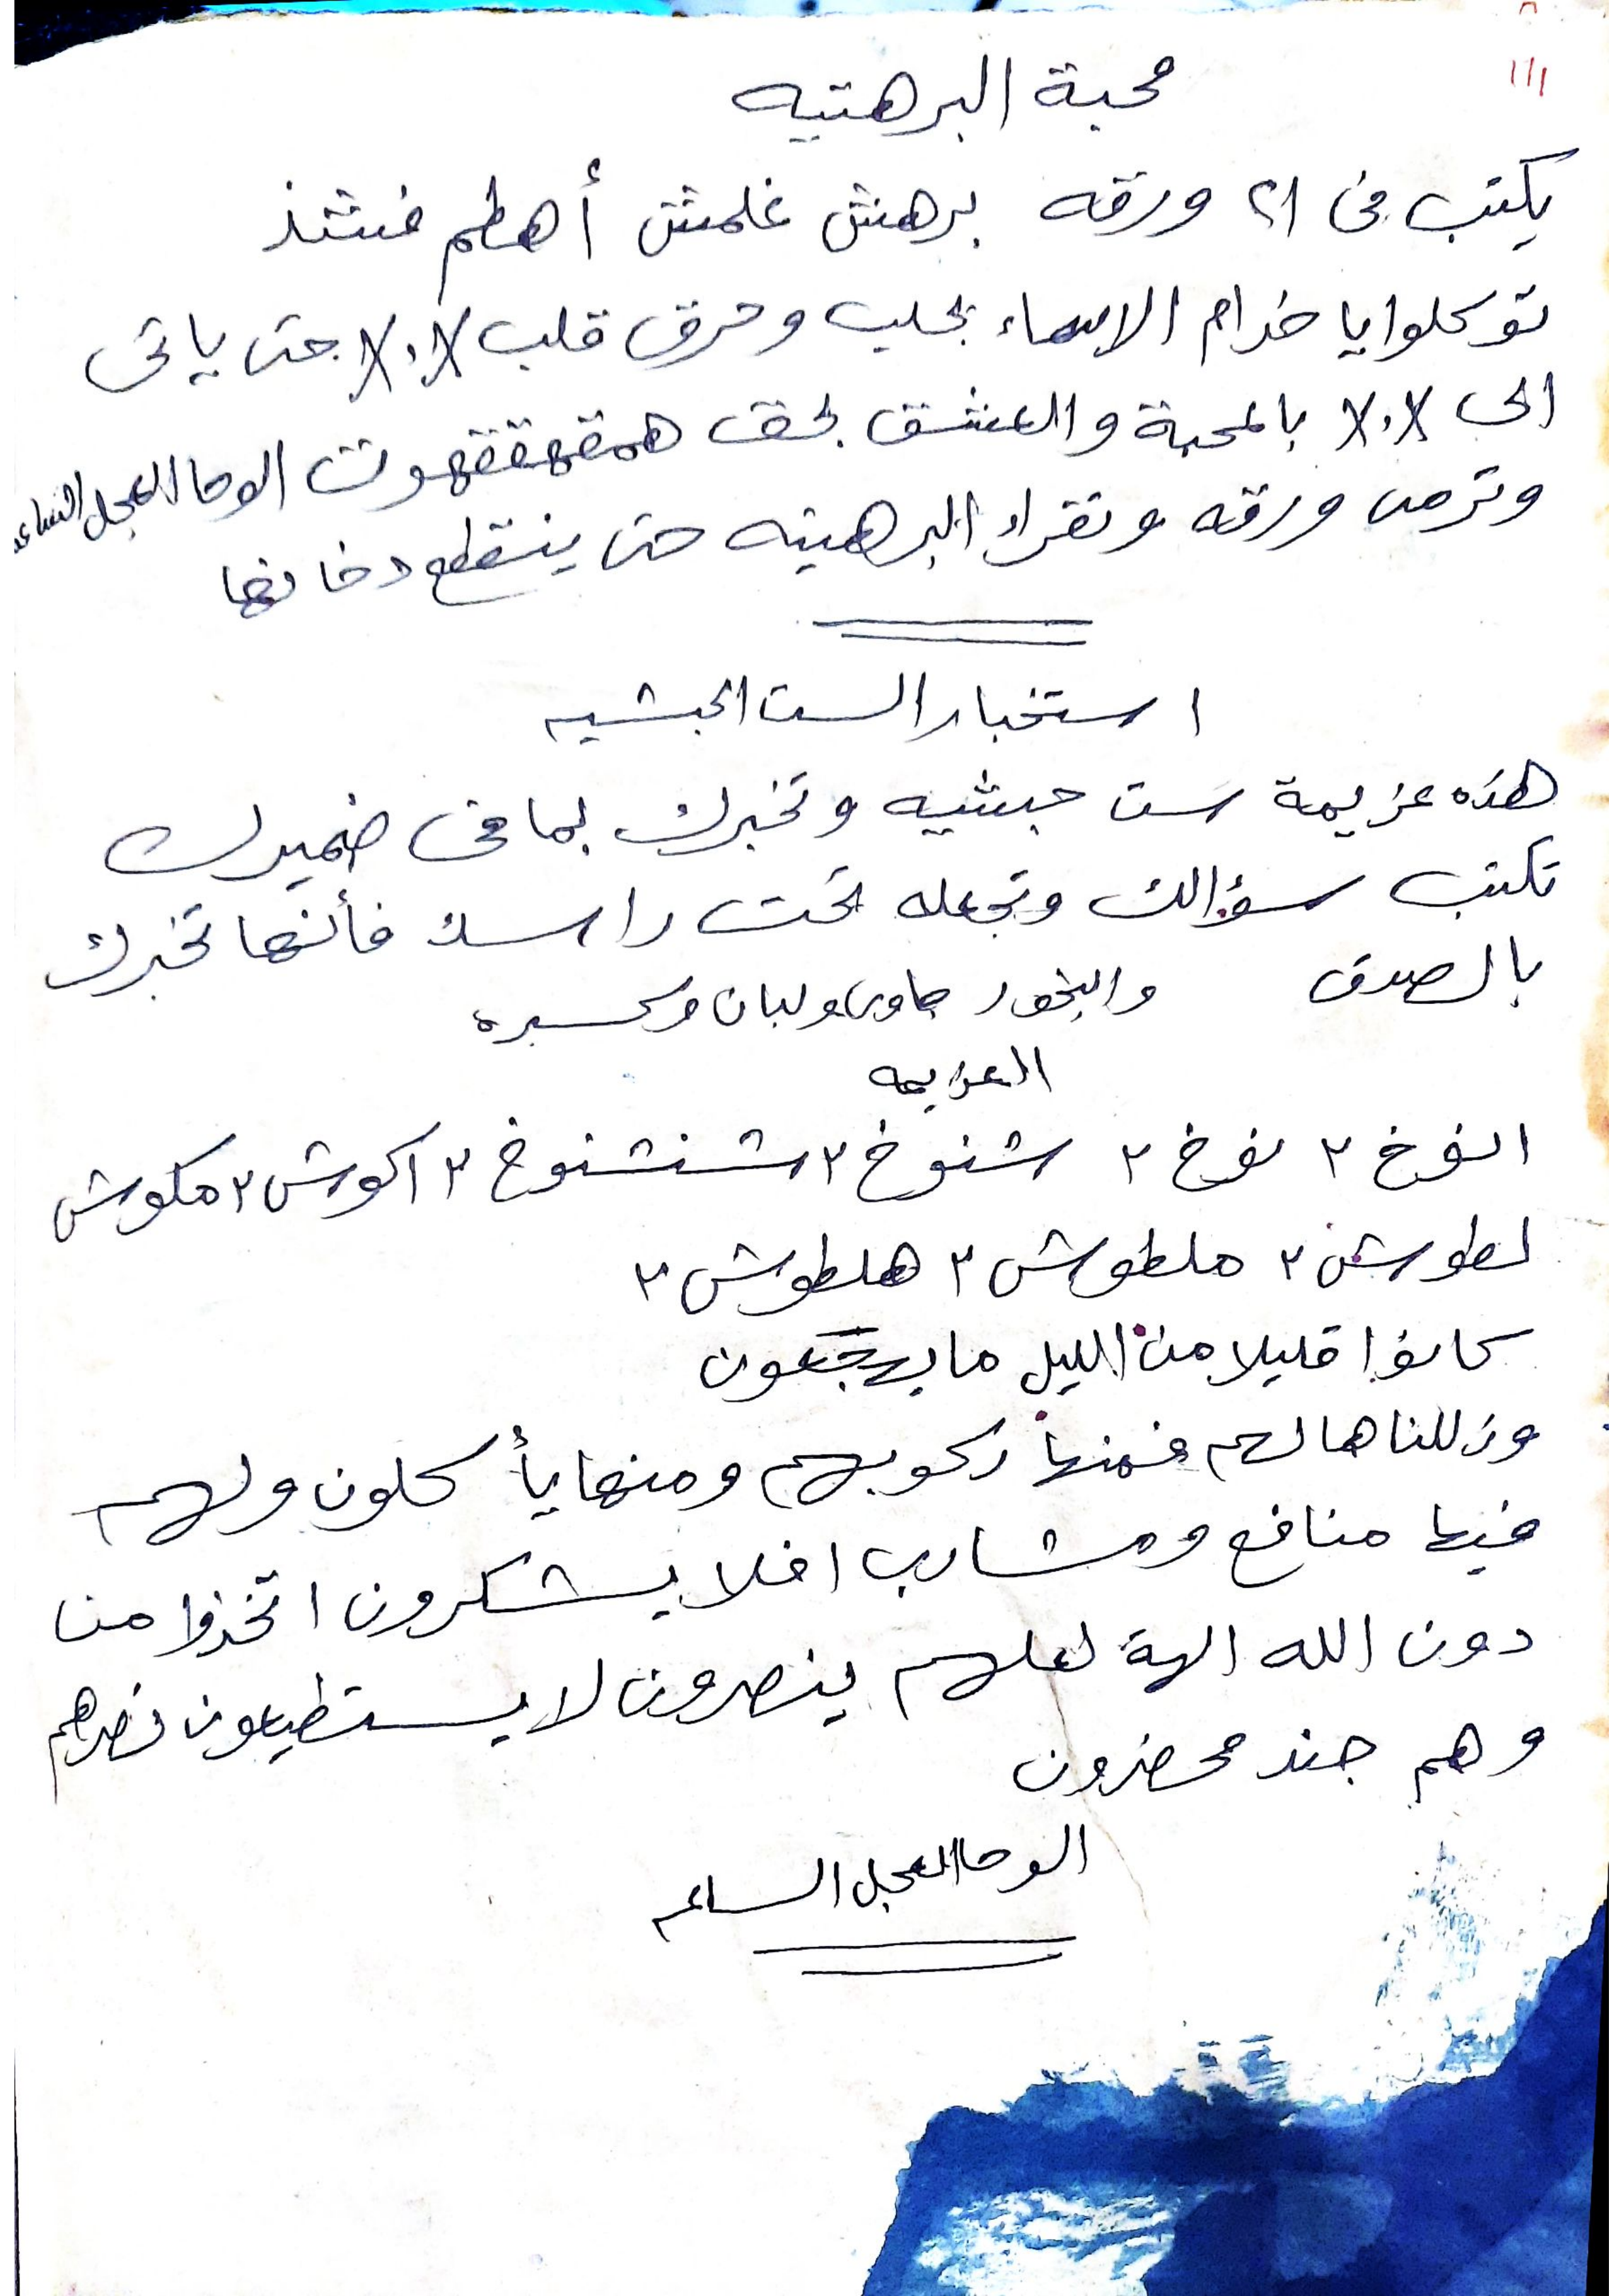 ١١١
محبة البرهتيه
يكتب فى ٢١ ورقه برهش غلمش أهطم فشذ
توكلوا يا خدام الاسماء بجلب وحرق قلب X.X حتى ياتى
الى X.X بالمحبة والعشق بحق همقهقتقهوت الوحا العجل الساعه
وترمى ورقه وتقراء البرهتيه حتى ينقطع دخانها
استخبار الست الحبشيه
هذه عزيمة ست حبشيه وتخبرك بما فى ضميرك
تكتب سؤالك وتجعله تحت راسك فأنها تخبرك
بالصدق والبخور جاوى ولبان وكسبره
العزيمه
انوخ ٢ نوخ ٢ شنوخ ٢ شنشنوخ ٢ اكوش ٢ مكوش
لطوش ٢ ملطوش ٢ هلطوش ٢
كانوا قليلا من الليل ما يهجعون
وذللناها لهم فمنها ركوبهم ومنها يأكلون ولهم
فيها منافع ومشارب افلا يشكرون اتخذوا من
دون الله الهة لعلهم ينصرون لا يستطيعون نصرهم
وهم جند محضرون
الوحا العجل الساعه